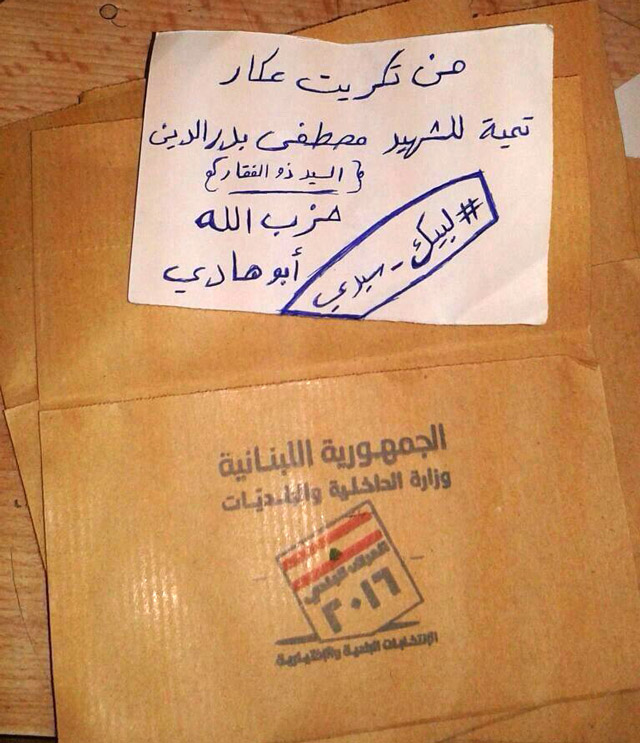 من تكريت عكار
تحية للشهيد مصطفى بدر الدين
{السيد ذو الفقار}
حزب الله
أبو هادي
#لبيك-سيدي
الجمهورية اللبنانية
وزارة الداخلية والبلديّات
القرار البلدي
٢٠١٦
الإنتخابات البلدية والإختيارية